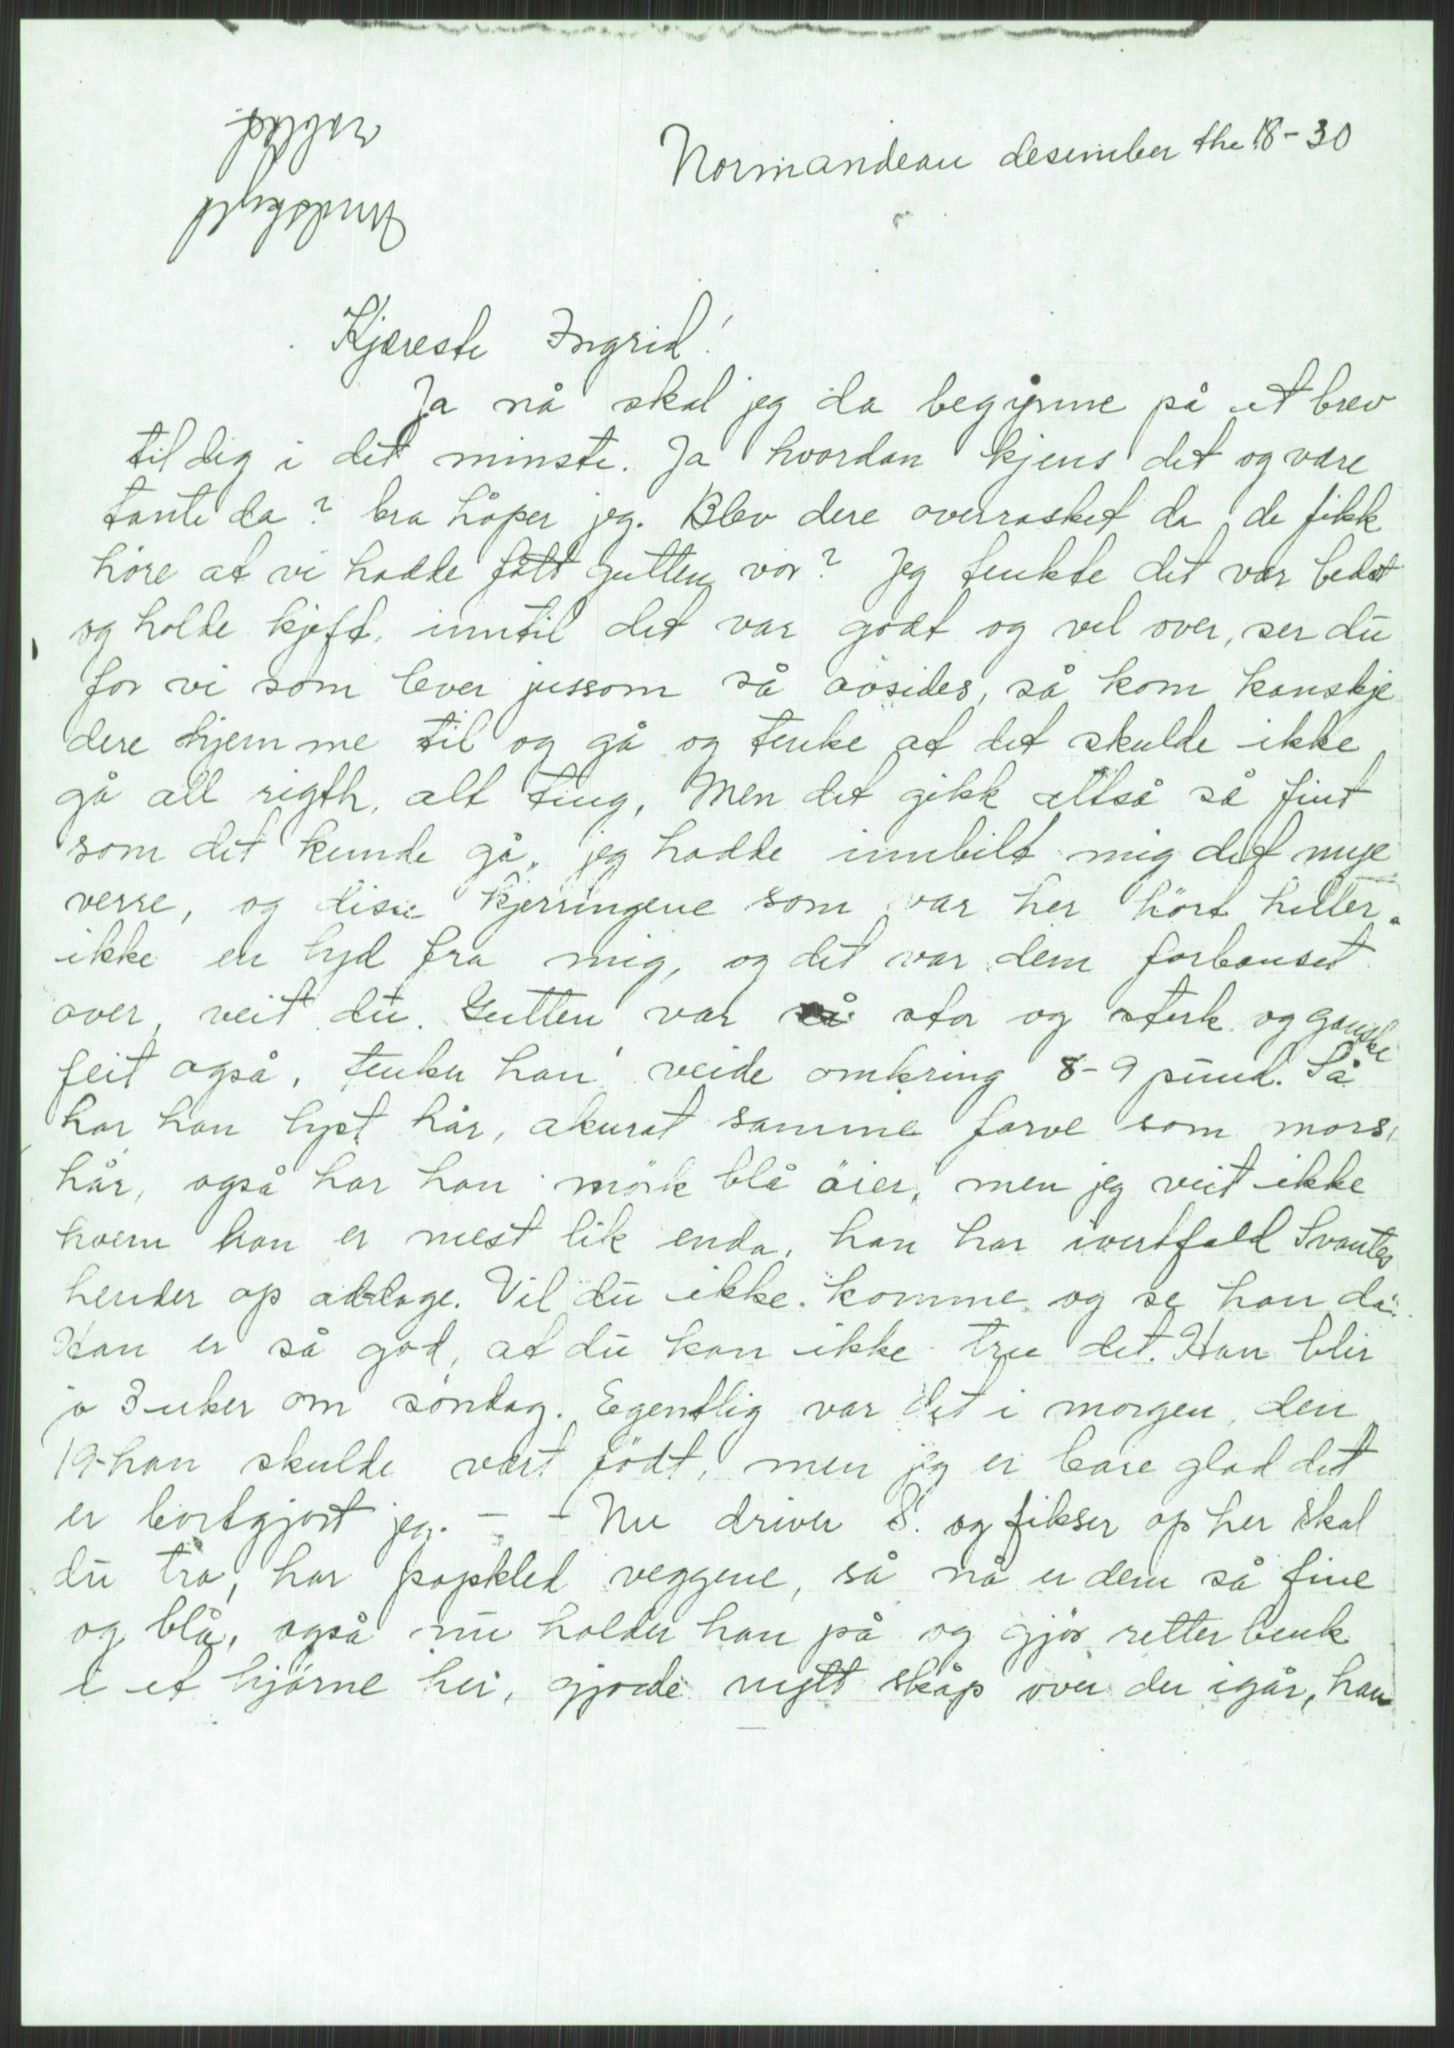 Normandeau desember the 18-30
Undskyld
Kjæreste Ingrid!
Ja nå skal jeg da begynne på et brev
til dig i det minste. Ja hvordan kjens det og være
tante da? bra håper jeg. Blev dere overrasket da de fikk
høre at vi hadde fått gutten vor? Jeg tenkte det var bedst
og holde kjeft, inntil det var godt og vel over, ser du
for vi som lever jussom så avsides, så kom kanskje
dere hjemme til og gå og tenke at det skulde ikke
gå all rigth, alt ting, Men det gikk altså så fint
som det kunde gå, jeg hadde innbilt mig det mye
verre, og disse kjerringene som var her hørt heller
ikke en lyd fra mig, og det var dem forbauset
over, veit du. Gutten var så stor og sterk og ganske
feit også, tenker han veide omkring 8-9 pund. Så
har han lyst hår, akurat samme farve som mors
hår, også har han mörk blå öier, men jeg veit ikke
hvem han er mest lik enda, han har ivertfald Svantes
hender op adage. Vil du ikke komme og se han da.
Han er så god, at du kan ikke tru det. Han blir
jo 3 uker om söndag. Egentlig var det i morgen, den
19-han skulde vært födt, men jeg er bare glad det
er bortgjort jeg. - - Nu driver S. og fikser op her skal
du tro, har papkled veggene, så nå er dem så fine
og blå, også nu holder han på og gjör retter benk
i et hjörne her, gjorde nytt skåp over der igår, han